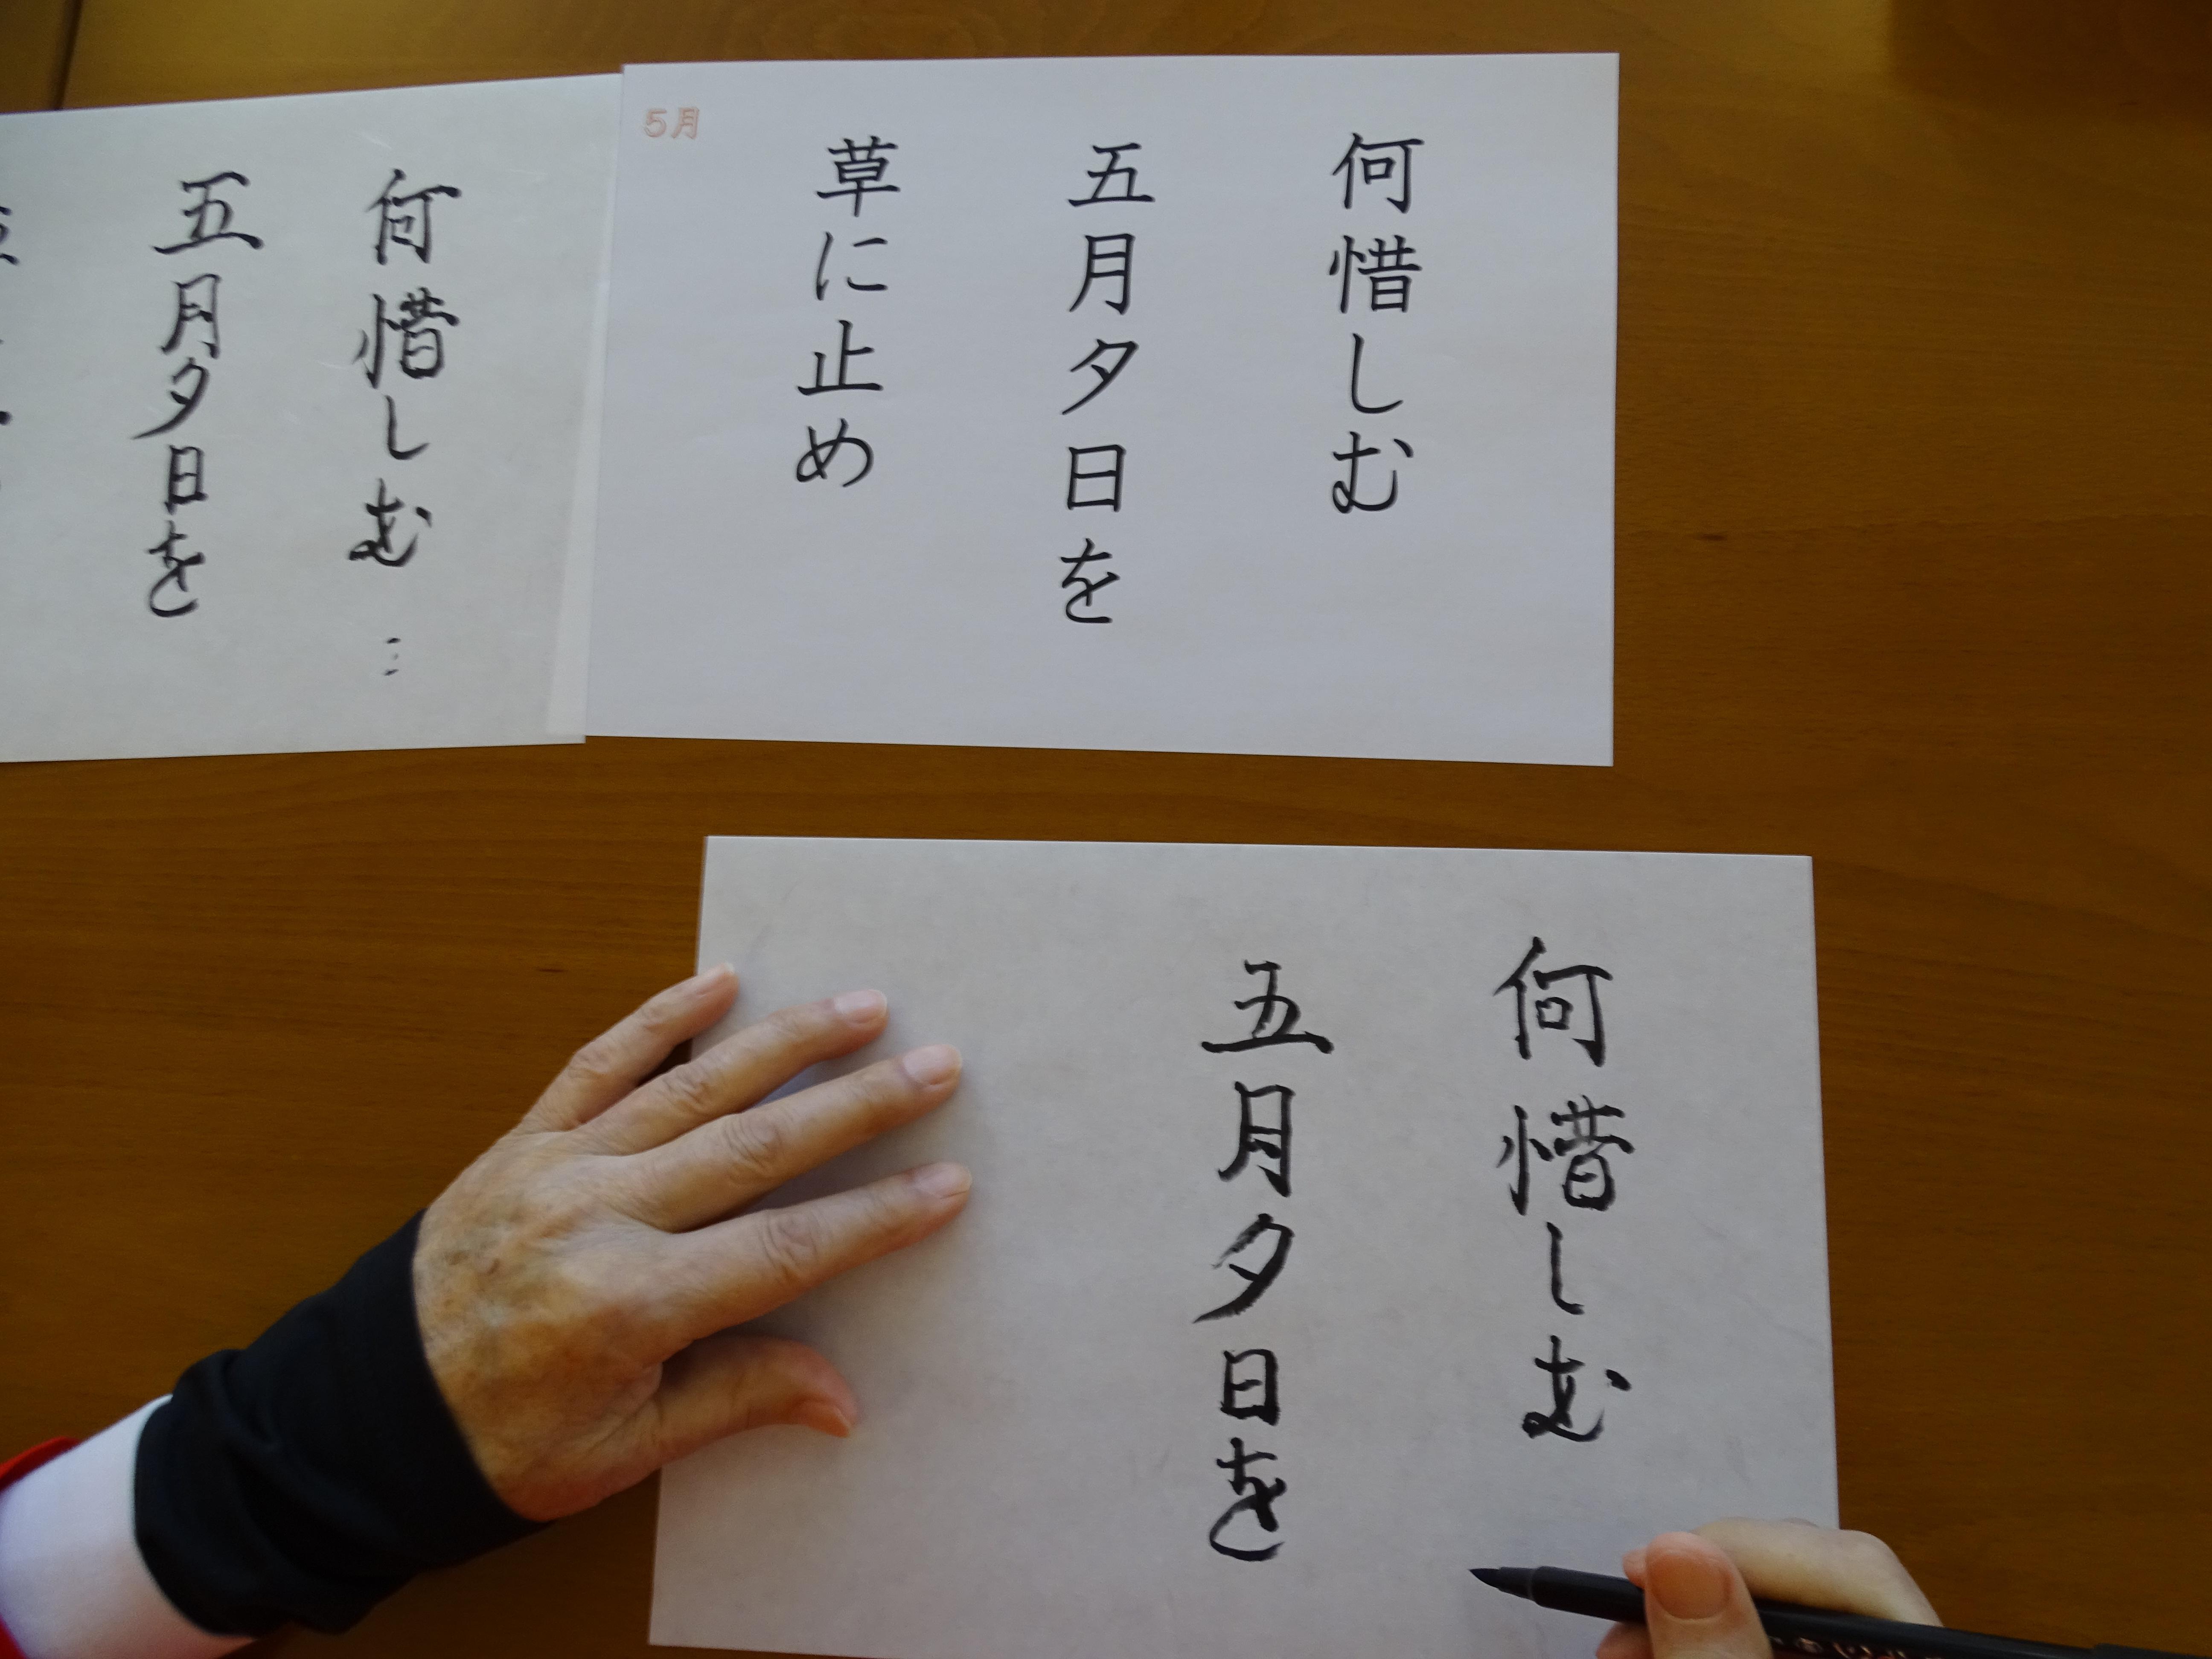 5月
何惜しむ
五月夕日を
草に止め
何惜しむ
五月夕日を
何惜しむ
五月夕日を